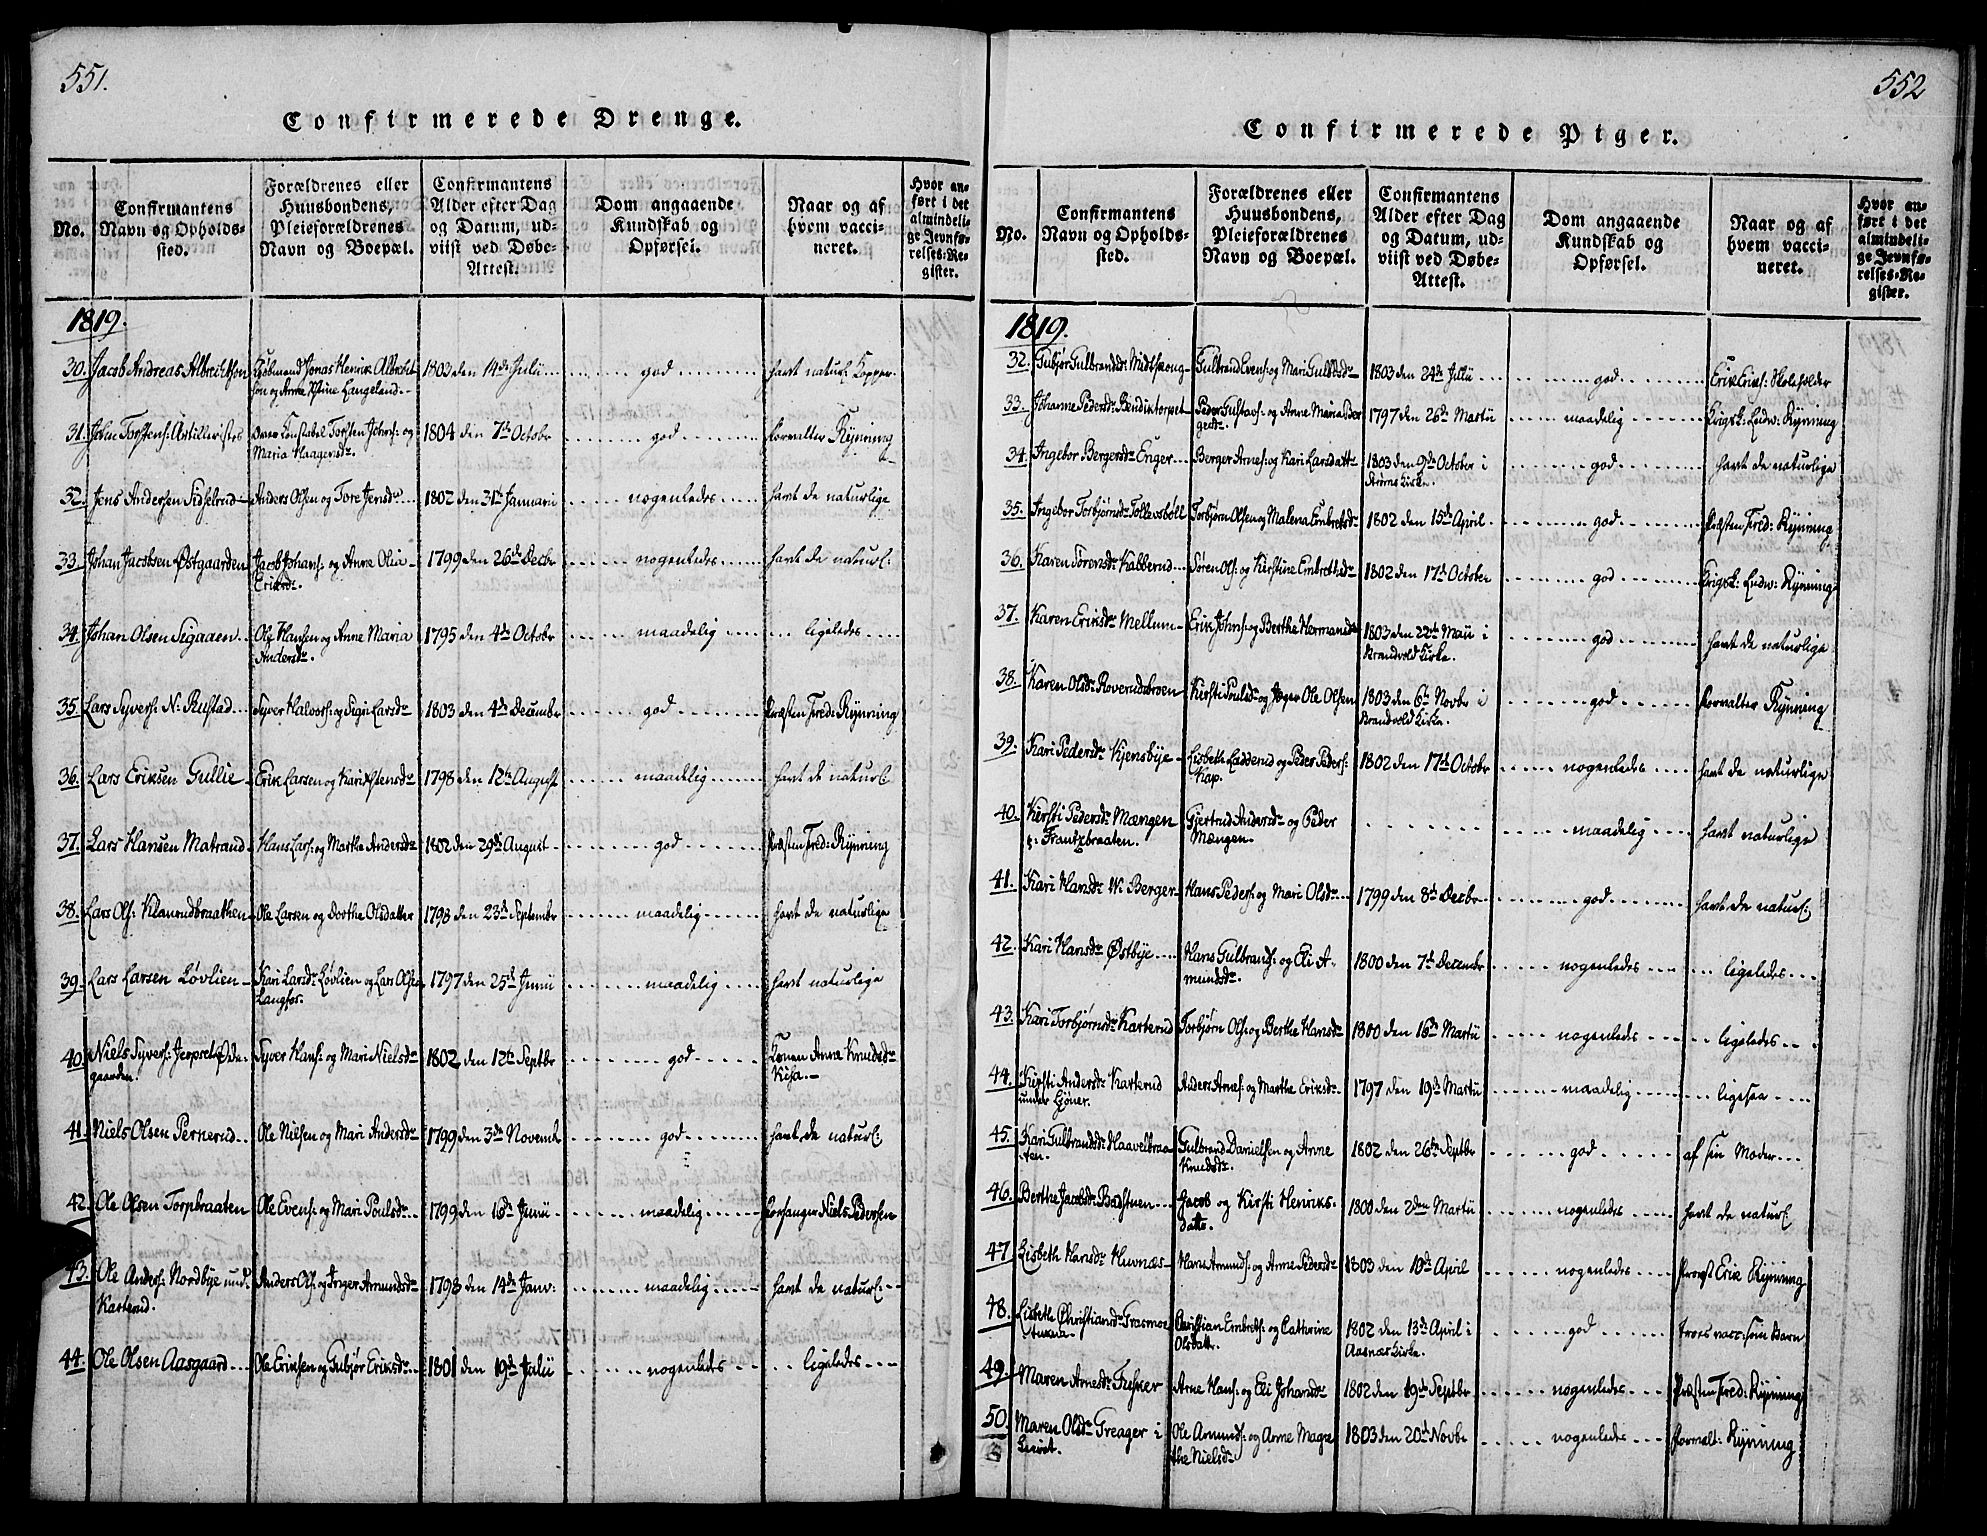 551.
Confirmerede Drenge.
No.
Confirmantens
Navn og Opholds-
sted.
Forældrenes eller
Huusbondens,
Pleieforældrenes
Navn og Boepæl.
Confirmantens
Alder efter Dag
og Datum, ud-
viist ved Døbe-
Attest.
Dom angaaende
Kundskab og
Opførsel.
Naar og af
hvem vacci-
neret.
Hvor an-
ført i det
almindeli-
ge Jevnfø-
relses-Re-
gister.
1819.
30. Jacob Andreas Albrichtsen Kjøbmand Jonas Henrik Albricht- 1803 den 14de Julii god havt naturl. Kopper
sen og Anne Stine Langeland
31. John Torstens: Artillerist Over Constabel Torsten Johns: og 1804 den 7de Octobr god Forvalter Rynning
Maria Haagensdr.
32. Jens Andersen Sidselrud Anders Olsen og Tore Jensdr 1802 den 31te Januarii nogenledes havt de naturlige
33. Johan Jacobsen Østgaarden Jacob Johans: og Anne Olia 1799 den 26de Decbr nogenledes havt de naturl:
Eriksdr.
34. Johan Olsen Sigaaen Ole Hansen og Anne Maria 1795 den 4de Octobr maadelig ligeledes
Andersdr.
35. Lars Syvers: N: Rustad Syver Halvors: og Sigri Larsdr 1803 den 4de Decembr god Præsten Fred: Rynning
36. Lars Eriksen Gullie Erik Larsen og Kari Østensdr 1798 den 12te August maadelig havt de naturl
37. Lars Hansen Matrand Hans Lars: og Marthe Andersdr 1802 den 29de August god Præsten Fred: Rynning
38. Lars Ols: Klanrudbraathen Ole Larsen og Dorthe Olsdatter 1798 den 23de Septembr maadelig havt de naturlige
39. Lars Larsen Løvlien Kari Larsdr Løvlien og Lars Olsen 1797 den 25de Junii maadelig havt naturlige
Langfos.
40. Niels Syvers: Jerpset Øde- Syver Hans: og Mari Nielsdr 1802 den 12te Septbr god Konen Anne Knudsdr
gaarden. Kisa.
41. Niels Olsen Pernerud Ole Nielsen og Mari Andersdr 1799 den 3de Novembr god havt de naturl:
42. Ole Olsen Torpbraaten Ole Evens: og Mari Poulsdr 1799 den 16de Junii maadelig Forsanger Niels Pedersen
43. Ole Anders: Nordbye und. Anders Ols: og Inger Amundsdr 1798 den 14de Janv: maadelig havt de naturl:
Karterud.
44. Ole Olsen Aasgaard Ole Eriksen og Gubjør Eriksdr 1801 den 19de Julii nogenledes ligeledes
552
Confirmerede Piger.
No.
Confirmantens
Navn og Opholds-
sted.
Forældrenes eller
Huusbondens,
Pleieforældrenes
Navn og Boepæl.
Confirmantens
Alder efter Dag
og Datum, ud-
viist ved Døbe-
Attest.
Dom angaaende
Kundskab og
Opførsel.
Naar og af
hvem vacci-
neret.
Hvor an-
ført i det
almindeli-
ge Jevnfø-
relses-Re-
gister.
1819.
32. Gubjør Gulbrandsdr Midtskoug Gulbrand Evens: og Mari Gulbrdsdr 1803 den 24de Julii god Erik Eriks: Skoleholder
33. Johanne Pedersdr Bendiktorpet Peder Gustavs: og Anne Maria Ber 1797 den 26de Martii maadelig Krigsk: Ludv: Rynning
gersdr.
34. Ingebor Bergersdr Enger Berger Arnes: og Kari Larsdattr 1803 den 9de October i god havt de naturlige
Strøms Kirke.
35. Ingebor Torbjørnsdr Tollevsböll Torbjørn Olsen og Malena Embretsdr 1802 den 15de April god Præsten Fred: Rynning
36. Karen Sørensdr Kabberud Søren Ols: og Kirstine Embrethsdr 1802 den 17de October god Krigsk: Ludv: Rynning
37. Karen Eriksdr Mellum Erik Johns: og Berthe Hermansdr 1803 den 22de Maii i god havt de naturlige
Brandvold Kirke.
38. Karen Olsdr Roverudsbroen Kirsti Poulsdr og Jæger Ole Olsen 1803 den 6te Novbr i god Forvalter Rynning
Brandvold Kirke.
39. Kari Pedersdr Kjensbye Lisbeth Ladderud og Peder Peders: 1802 den 17de Octobr nogenledes havt de naturlige
Kiap.
40. Kirsti Pedersdr Mængen Gjertrud Andersdr og Peder maadelig havt naturlige
p: Frantzbraaten. Mængen.
41. Kari Hansdr N: Berger Hans Peders: og Mari Olsdr 1799 den 8de Decbr god havt de naturl:
42. Kari Hansdr Østbye Hans Gulbrands: og Eli A- 1800 den 7de Decembr nogenledes ligeledes
mundsdr.
43. Kari Torbjørnsdr Karterud Torbjørn Ols: og Berthe Hansdr 1800 den 16de Martii nogenledes ligeledes
44. Kirsti Andersdr Karterud Anders Arnes: og Marthe Eriksdr 1797 den 19de Martii maadelig ligesaa
under Sjøner.
45. Kari Gulbrandsdr Haavelbraa Gulbrand Danielsen og Anne 1802 den 26de Septbr god af sin Moder
ten. Knudsdr.
46. Berthe Jacobsdr Badstuen Jacob og Kirsti Henriks- 1800 den 2den Martii nogenledes havt de naturl:
datter.
47 Lisbeth Hansdr Huvnæs Hans Amunds: og Arne Pedersdr 1803 den 10de April nogenledes Provst Erik Rynning
48. Lisbeth Christiansdr Grasmoe Christian Embrets: og Cathrine 1802 den 13de April i god vacc: som Barn
Olsdatter. Aasnæs Kirke.
49. Maren Arnesdr Fresner Arne Hans: og Eli Johansdr 1802 den 19de Septbr nogenledes Præsten Fred: Rynning
50. Maren Olsdr Greager i Ole Amunds: og Anne Magre 1803 den 20de Novbr nogenledes Forvalt: Rynning
Lieret. the Nielsdr